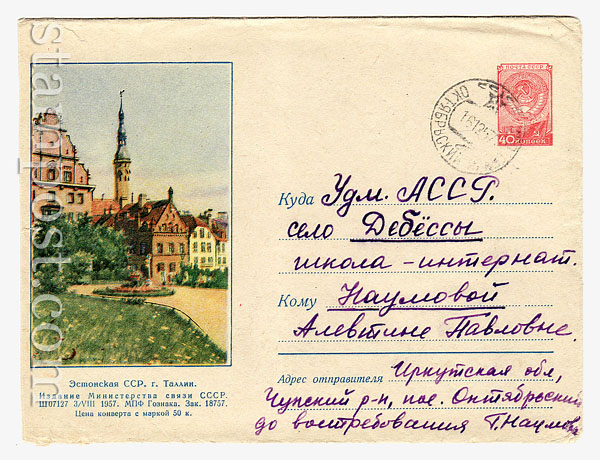 ПОЧТА СССР
40 КОПЕЕК
ОКТЯБРЬСКИЙ
Куда Удм. АССР.
село Дебёссы
школа-интернат.
Кому Наумовой
Алевтине Павловне.
Адрес отправителя Иркутская обл,
Чунский р-н, пос. Октябрьский
до востребования Г. Наумов
Эстонская ССР. г. Таллин.
Издание Министерства связи СССР.
Ш07127 3/VIII 1957. МПФ Гознака. Зак. 18757.
Цена конверта с маркой 50 к.
stampost.com